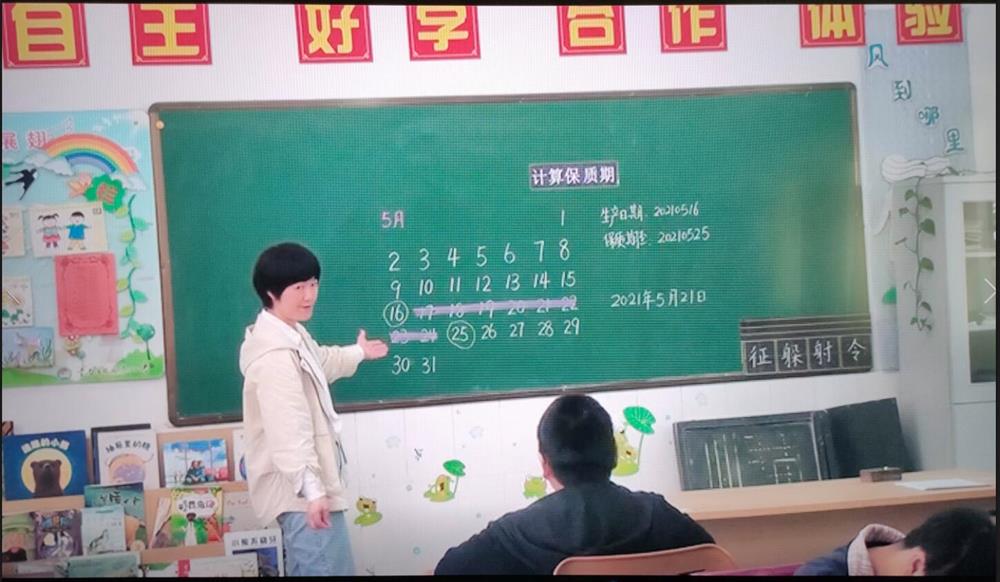 自主 好学 合作 体验
风到哪里
展翅
计算保质期
5月 1
生产日期: 20210516
保质期至: 20210525
2 3 4 5 6 7 8
9 10 11 12 13 14 15
16 17 18 19 20 21 22
2021年5月21日
23 24 25 26 27 28 29
30 31
征 躲 射 令